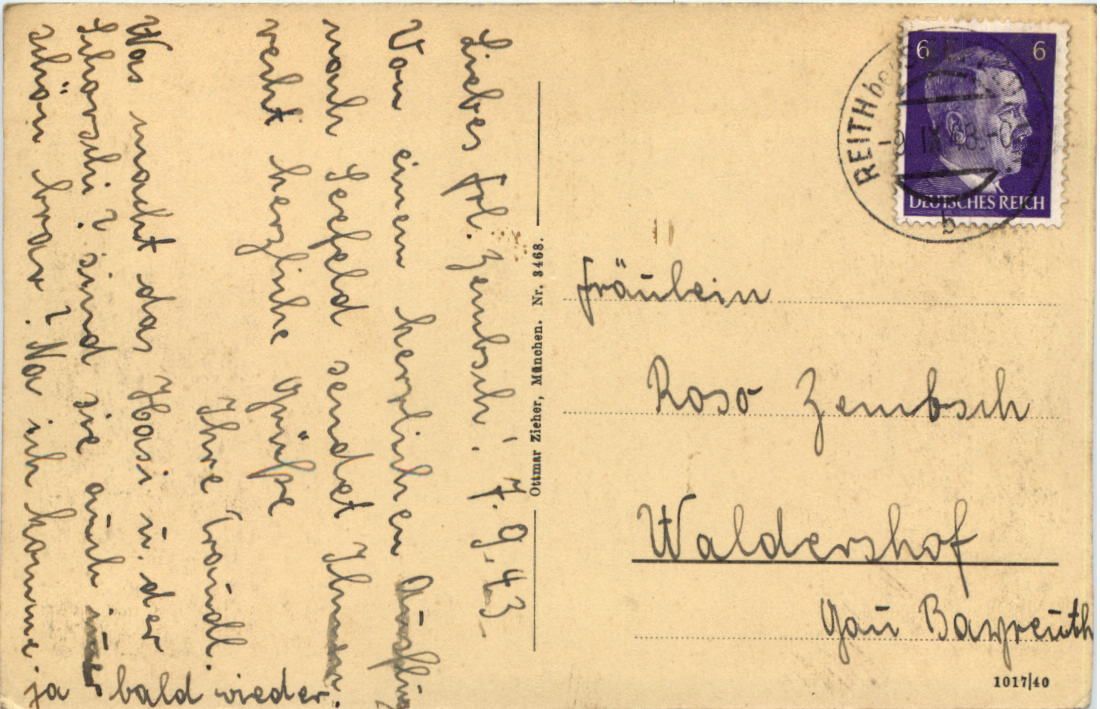 Liebes Frl. Zembsch! 7.9.43
Von einem herzlichen Ausflug
nach Seefeld sendet Ihnen
recht herzliche Grüße
Ihre Traudl.
Was macht das Hasi u. der
Schorschi? sind sie auch immer
schön brav? Na ich komme
ja bald wieder.
Ottmar Zieher, München. Nr. 3468.
6 6
DEUTSCHES REICH
REITH bei
IX 43
b
Fräulein
Rosa Zembsch
Waldershof
Gau Bayreuth
1017/40